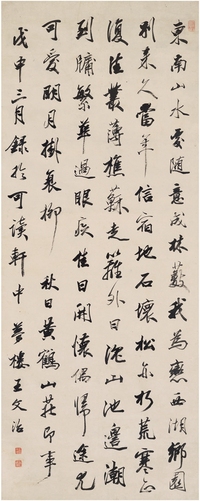 東南山水㝡隨意成林藪我為戀西湖鄉園
別來久當年信宿地石壞松亦朽荒寒
復往叢薄樵蘇走籬外日沈山池邊潮
到牖繁華過眼疾佳日開懷偶歸途尤
可愛明月掛衰柳 秋日黃鶴山莊即事
戊申三月錄於可讀軒中 夢樓王文治